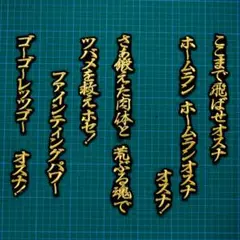 ここまで飛ばせオスナ
ホームラン ホームランオスナ
オスナ!
さあ鍛えた肉体と 荒ぶる魂で
ツバメを救えホセ!
ファインティングパワー
オスナ!
ゴーゴーレッツゴー
オスナ!